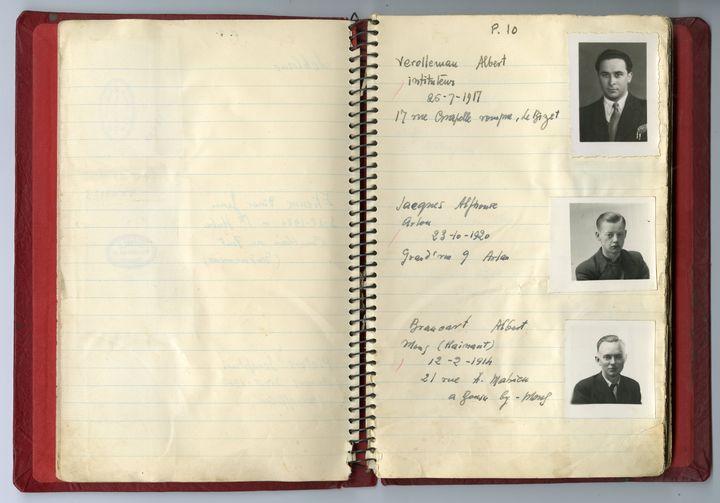 P. 10
Verolleman Albert
instituteur
26-7-1917
17 rue Chapelle rompue, Le Bizet
Jacques Alphonse
Arlon
23-10-1920
Grand'rue 9 Arlon
Brancart Albert
Mons (Hainaut)
12-2-1914
21 rue A. Mabieu
a lez-Mons